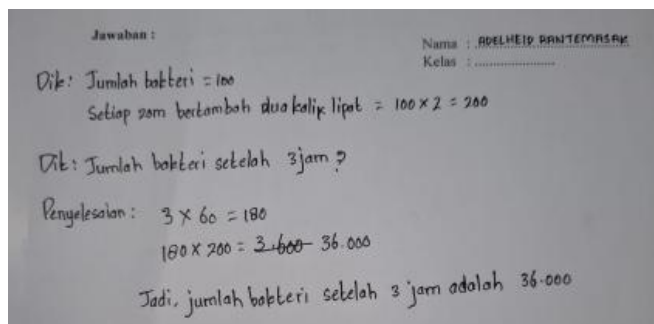 Jawaban :
Nama : ADELHEID RANTEMASAK
Kelas : ......................
Dik : Jumlah bakteri = 100
Setiap 20m bertambah dua kali lipat = 100 × 2 = 200
Dit : Jumlah bakteri setelah 3 jam ?
Penyelesaian : 3 × 60 = 180
180 × 200 = 3.600 36.000
Jadi, jumlah bakteri setelah 3 jam adalah 36.000